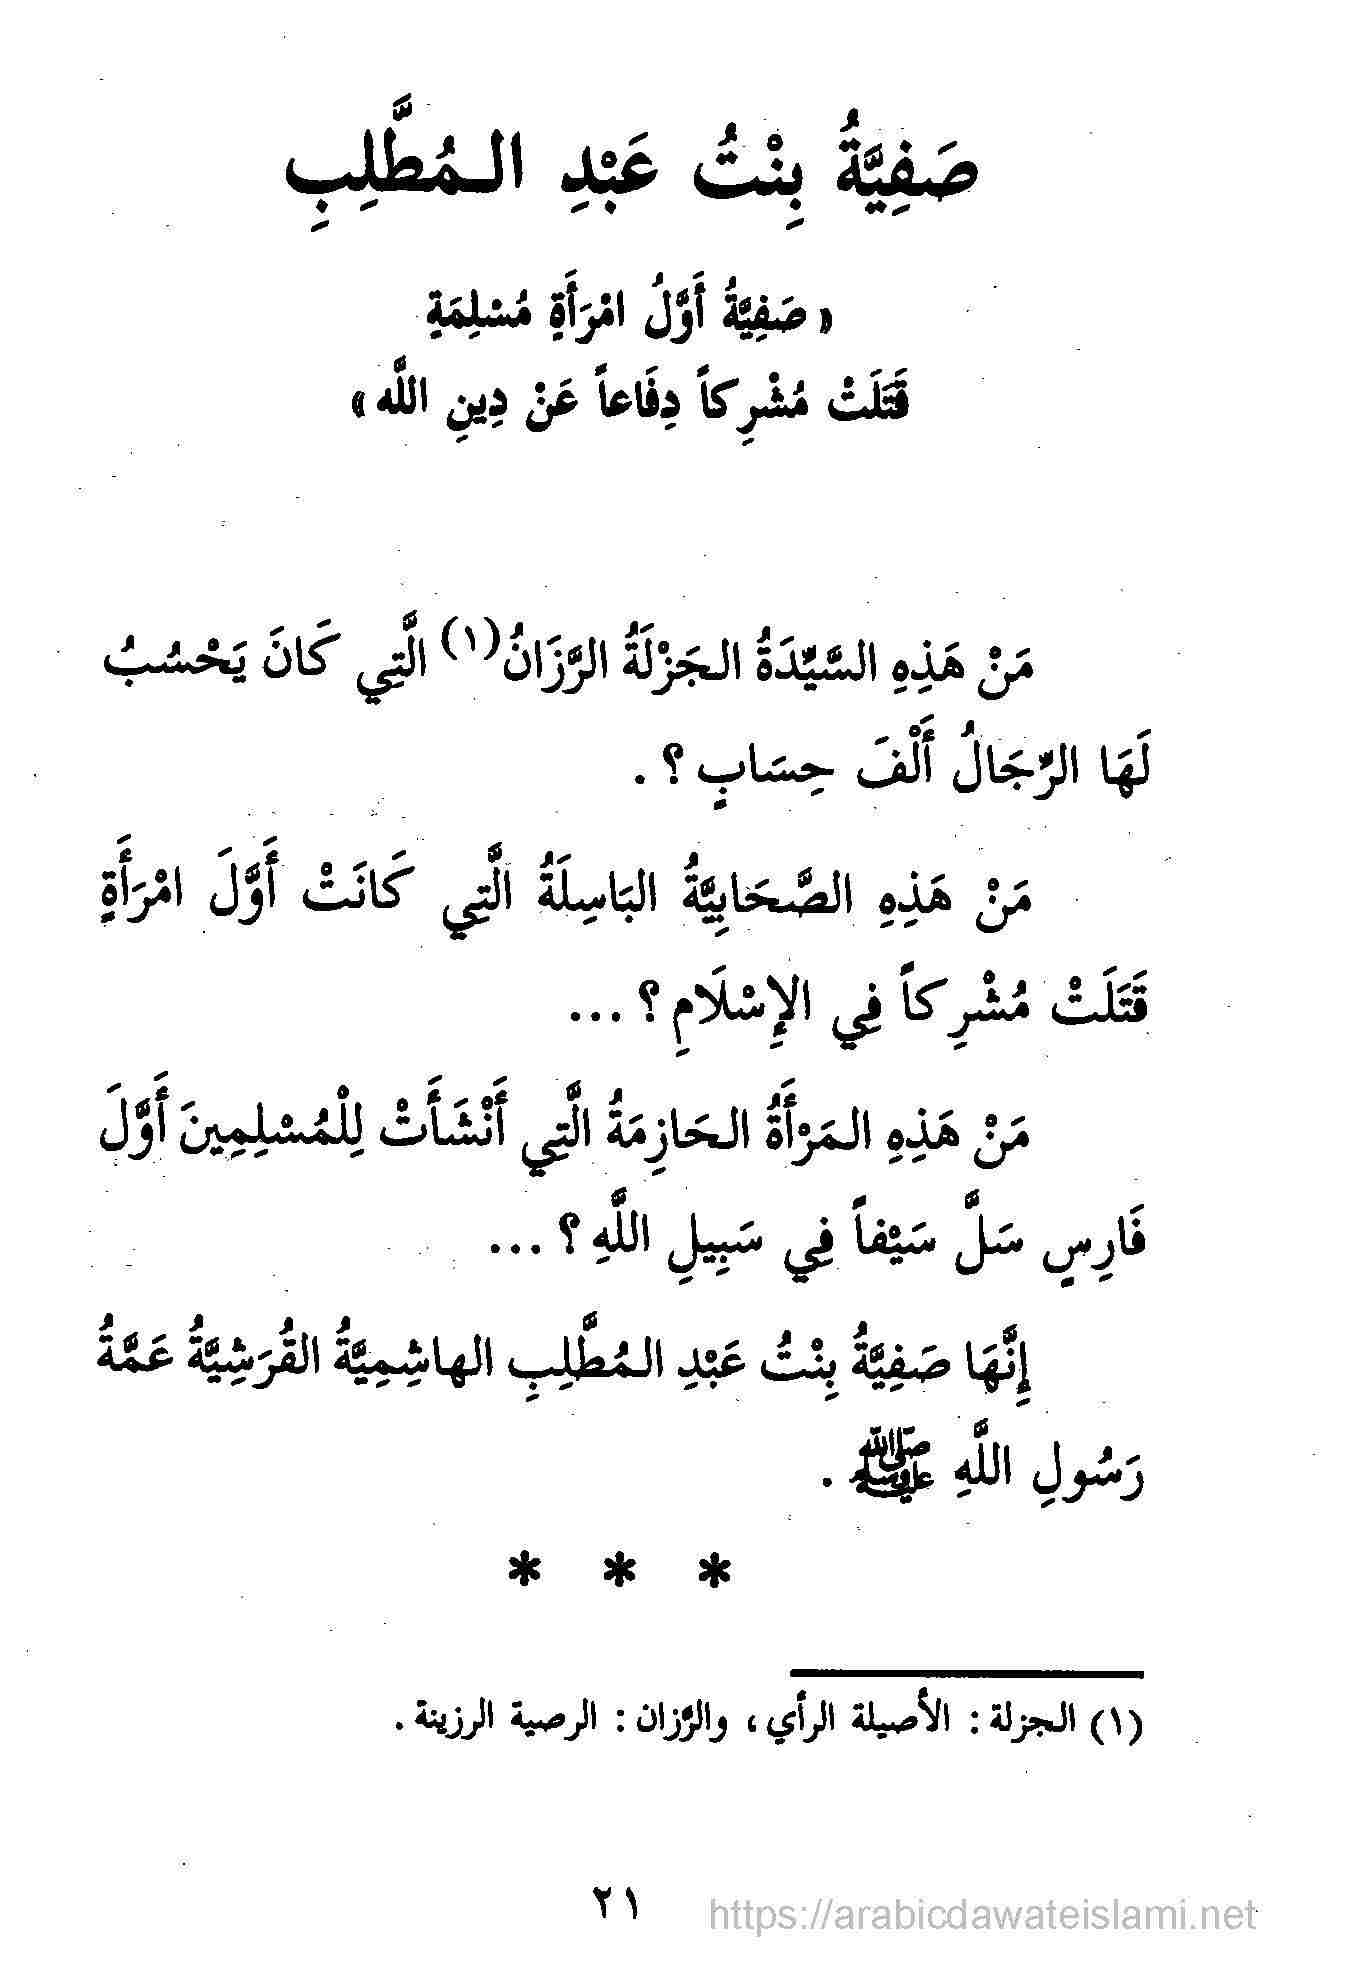 صَفِيَّةُ بِنْتُ عَبْدِ الـمُطَّلِبِ
« صَفِيَّةُ أَوَّلُ امْرَأَةٍ مُسْلِمَةٍ
قَتَلَتْ مُشْرِكاً دِفَاعاً عَنْ دِينِ اللَّه »
مَنْ هَذِهِ السَّيِّدَةُ الـجَزْلَةُ الرَّزَانُ(١) الَّتِي كَانَ يَحْسُبُ
لَهَا الرِّجَالُ أَلْفَ حِسَابٍ ؟ .
مَنْ هَذِهِ الصَّحَابِيَّةُ البَاسِلَةُ الَّتِي كَانَتْ أَوَّلَ امْرَأَةٍ
قَتَلَتْ مُشْرِكاً فِي الإِسْلَامِ ؟ ...
مَنْ هَذِهِ الـمَرْأَةُ الـحَازِمَةُ الَّتِي أَنْشَأَتْ لِلْمُسْلِمِينَ أَوَّلَ
فَارِسٍ سَلَّ سَيْفاً فِي سَبِيلِ اللَّهِ ؟ ...
إِنَّهَا صَفِيَّةُ بِنْتُ عَبْدِ الـمُطَّلِبِ الهاشِمِيَّةُ القُرَشِيَّةُ عَمَّةُ
رَسُولِ اللَّهِ ﷺ .
* * *
(١) الـجزلة : الأصيلة الرأي ، والرَّزان : الرصية الرزينة .
٢١
https://arabicdawateislami.net